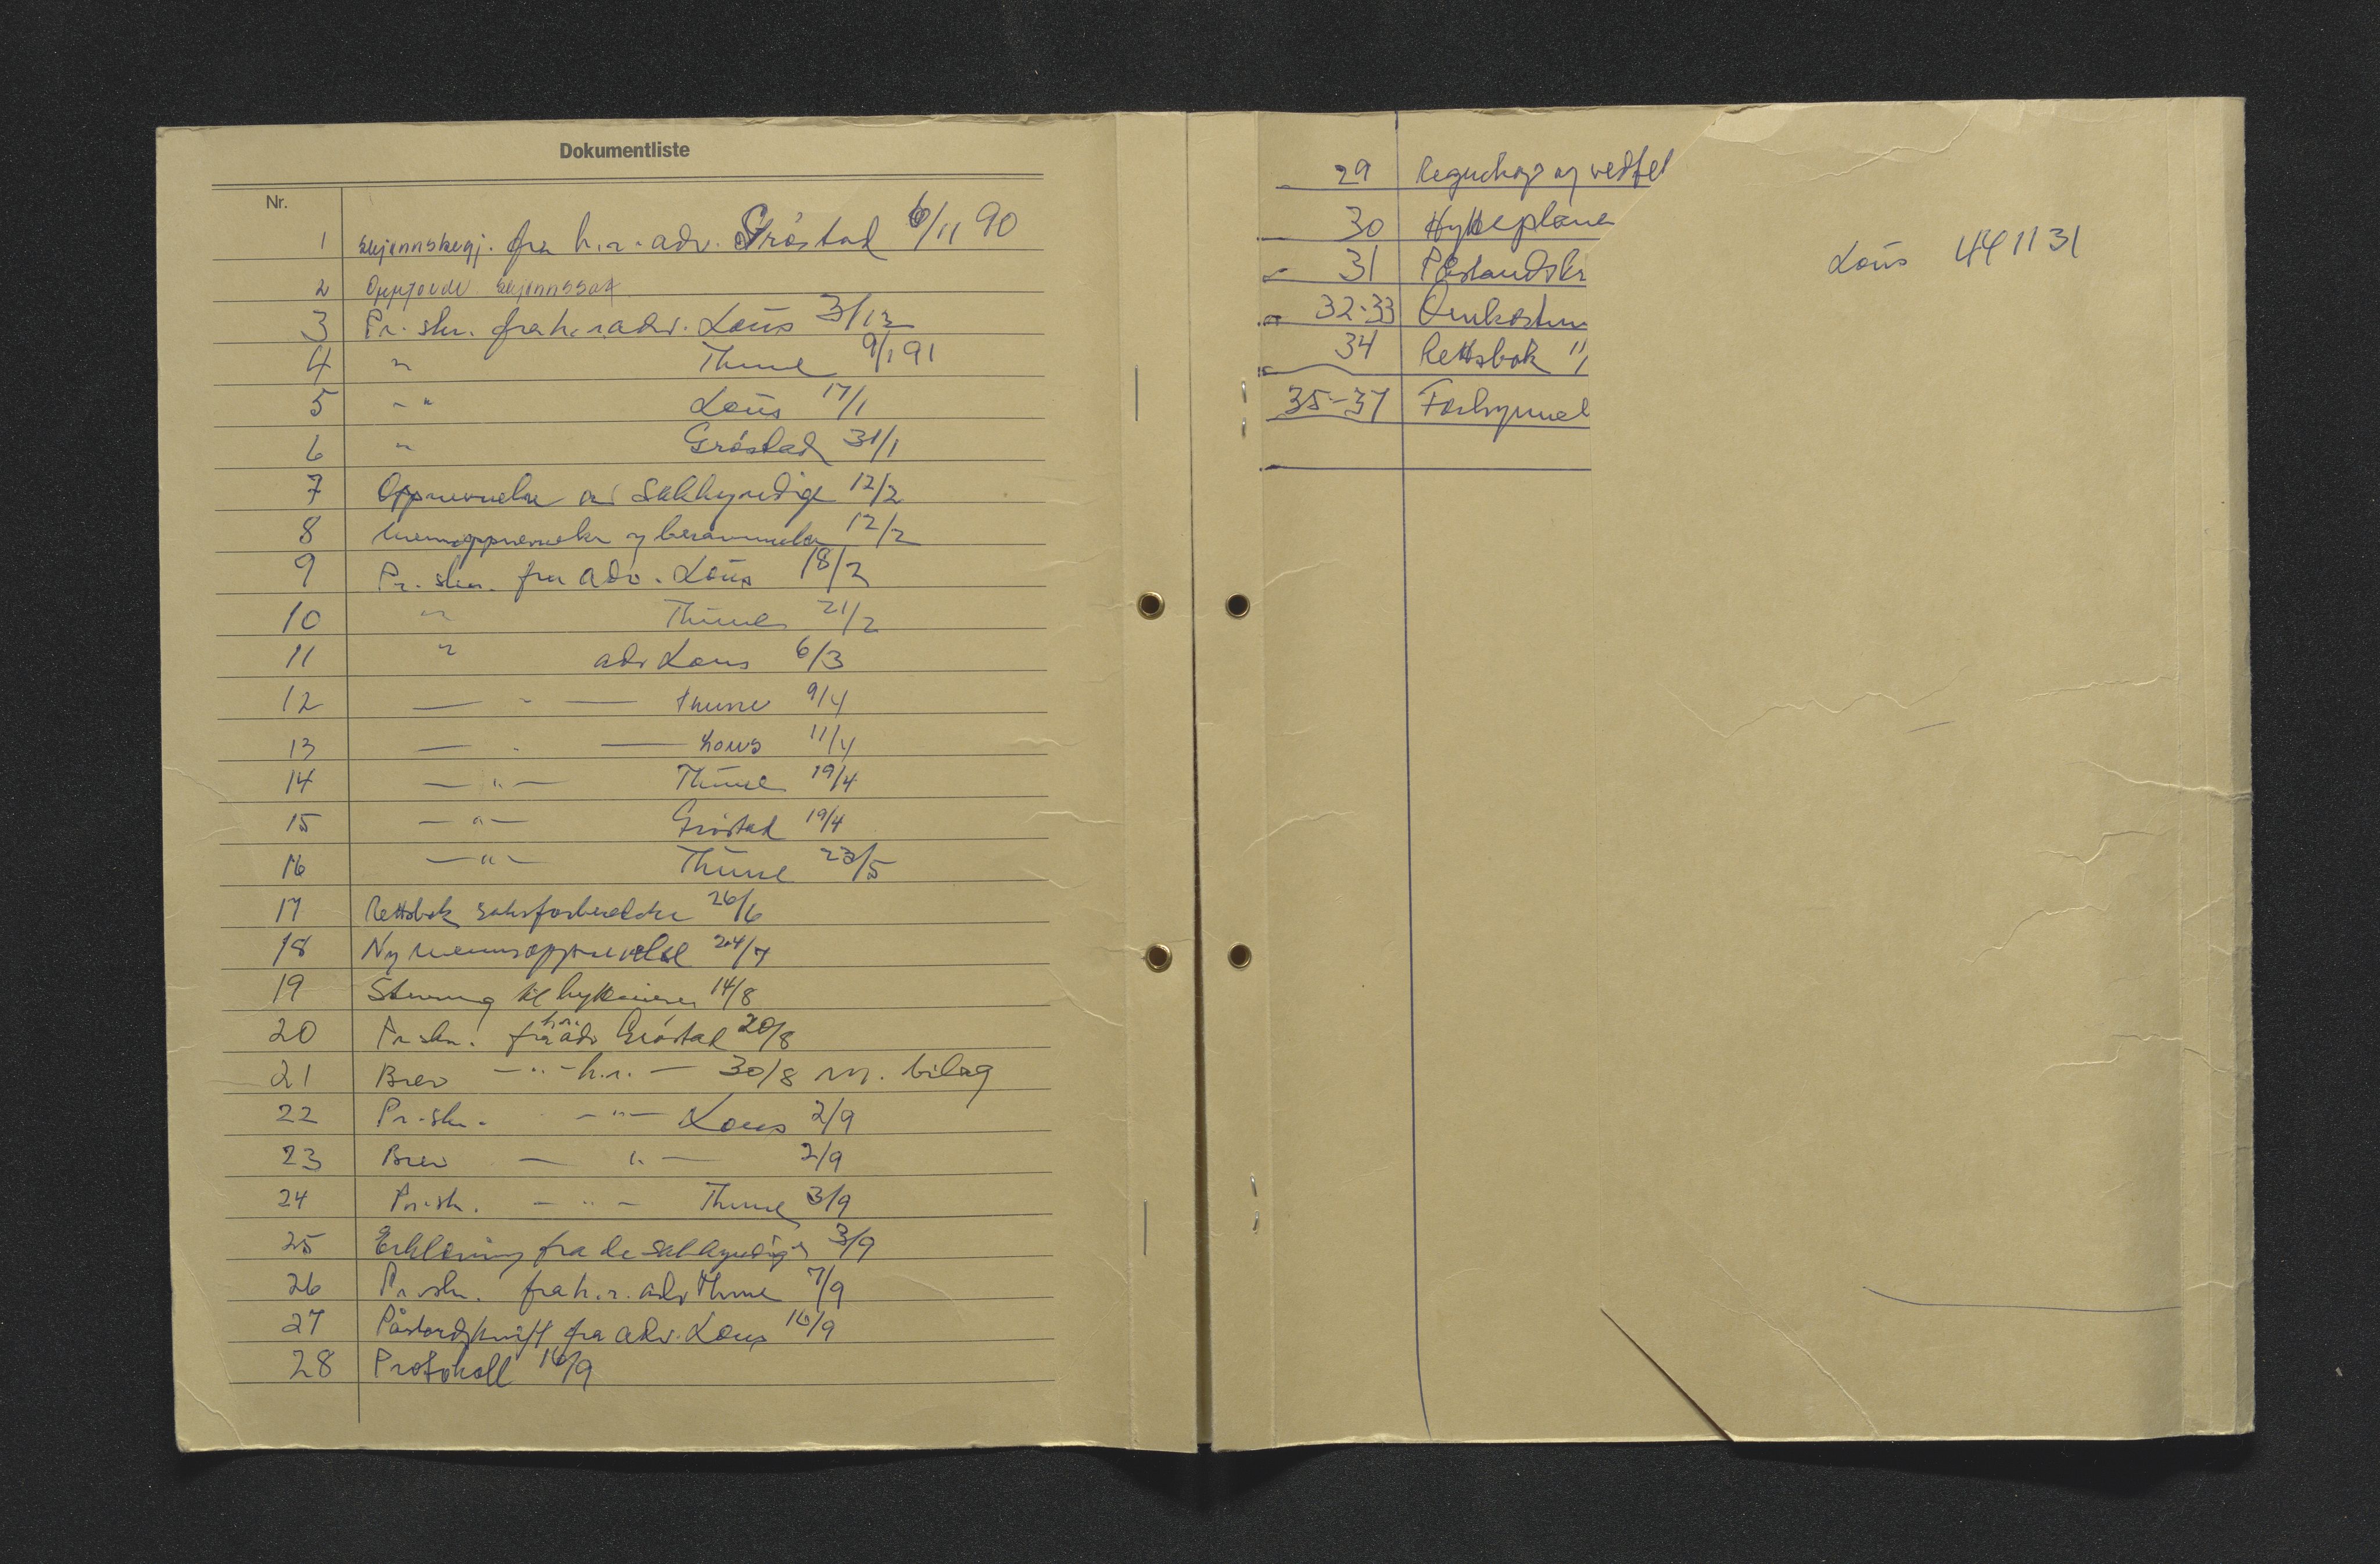 Dokumentliste
Nr.
1 Skjønnsbegj. fra h.r. adv. Gröstad 6/11 90
2 Oppgjevde skjønnssak
3 Pr. skr. fra h.r. adv. Loüs 3/12
4 " Thune 9/1 91
5 - " Loüs 17/1
6 " Gröstad 31/1
7 Oppnevnelse av sakkyndige 12/2
8 og berammelse 12/2
9 Pr. skr. fra adv. Loüs 18/2
10 " Thune 21/2
11 " adv Lous 6/3
12 — " — Thune 9/4
13 — " — Lous 11/4
14 — " — Thune 19/4
15 — " — Gröstad 19/4
16 — " — Thune 23/5
17 Rettsbok saksforberedelse 26/6
18 Ny mannsoppnevnelse 24/7
19 Stevning til hytteeiere 14/8
20 Pr skr. fra h.r. adv Gröstad 20/8
21 Brev - " - h.r. - 30/8 m. bilag
22 Pr. skr. - " - Lous 2/9
23 Brev — " — 2/9
24 Pr. sk. - " - Thune 3/9
25 Erklæring fra de sakkyndige 3/9
26 Pr. skr. fra h.r. adv Thune 7/9
27 Påstandskrift fra adv. Lous 16/9
28 Protokoll 16/9
29 og vedtek
30 Hytteplane
31 Påstandskr
32-33 Omkostn
34 Rettsbok 11/
35-37 Forkynnel
Loüs 441131